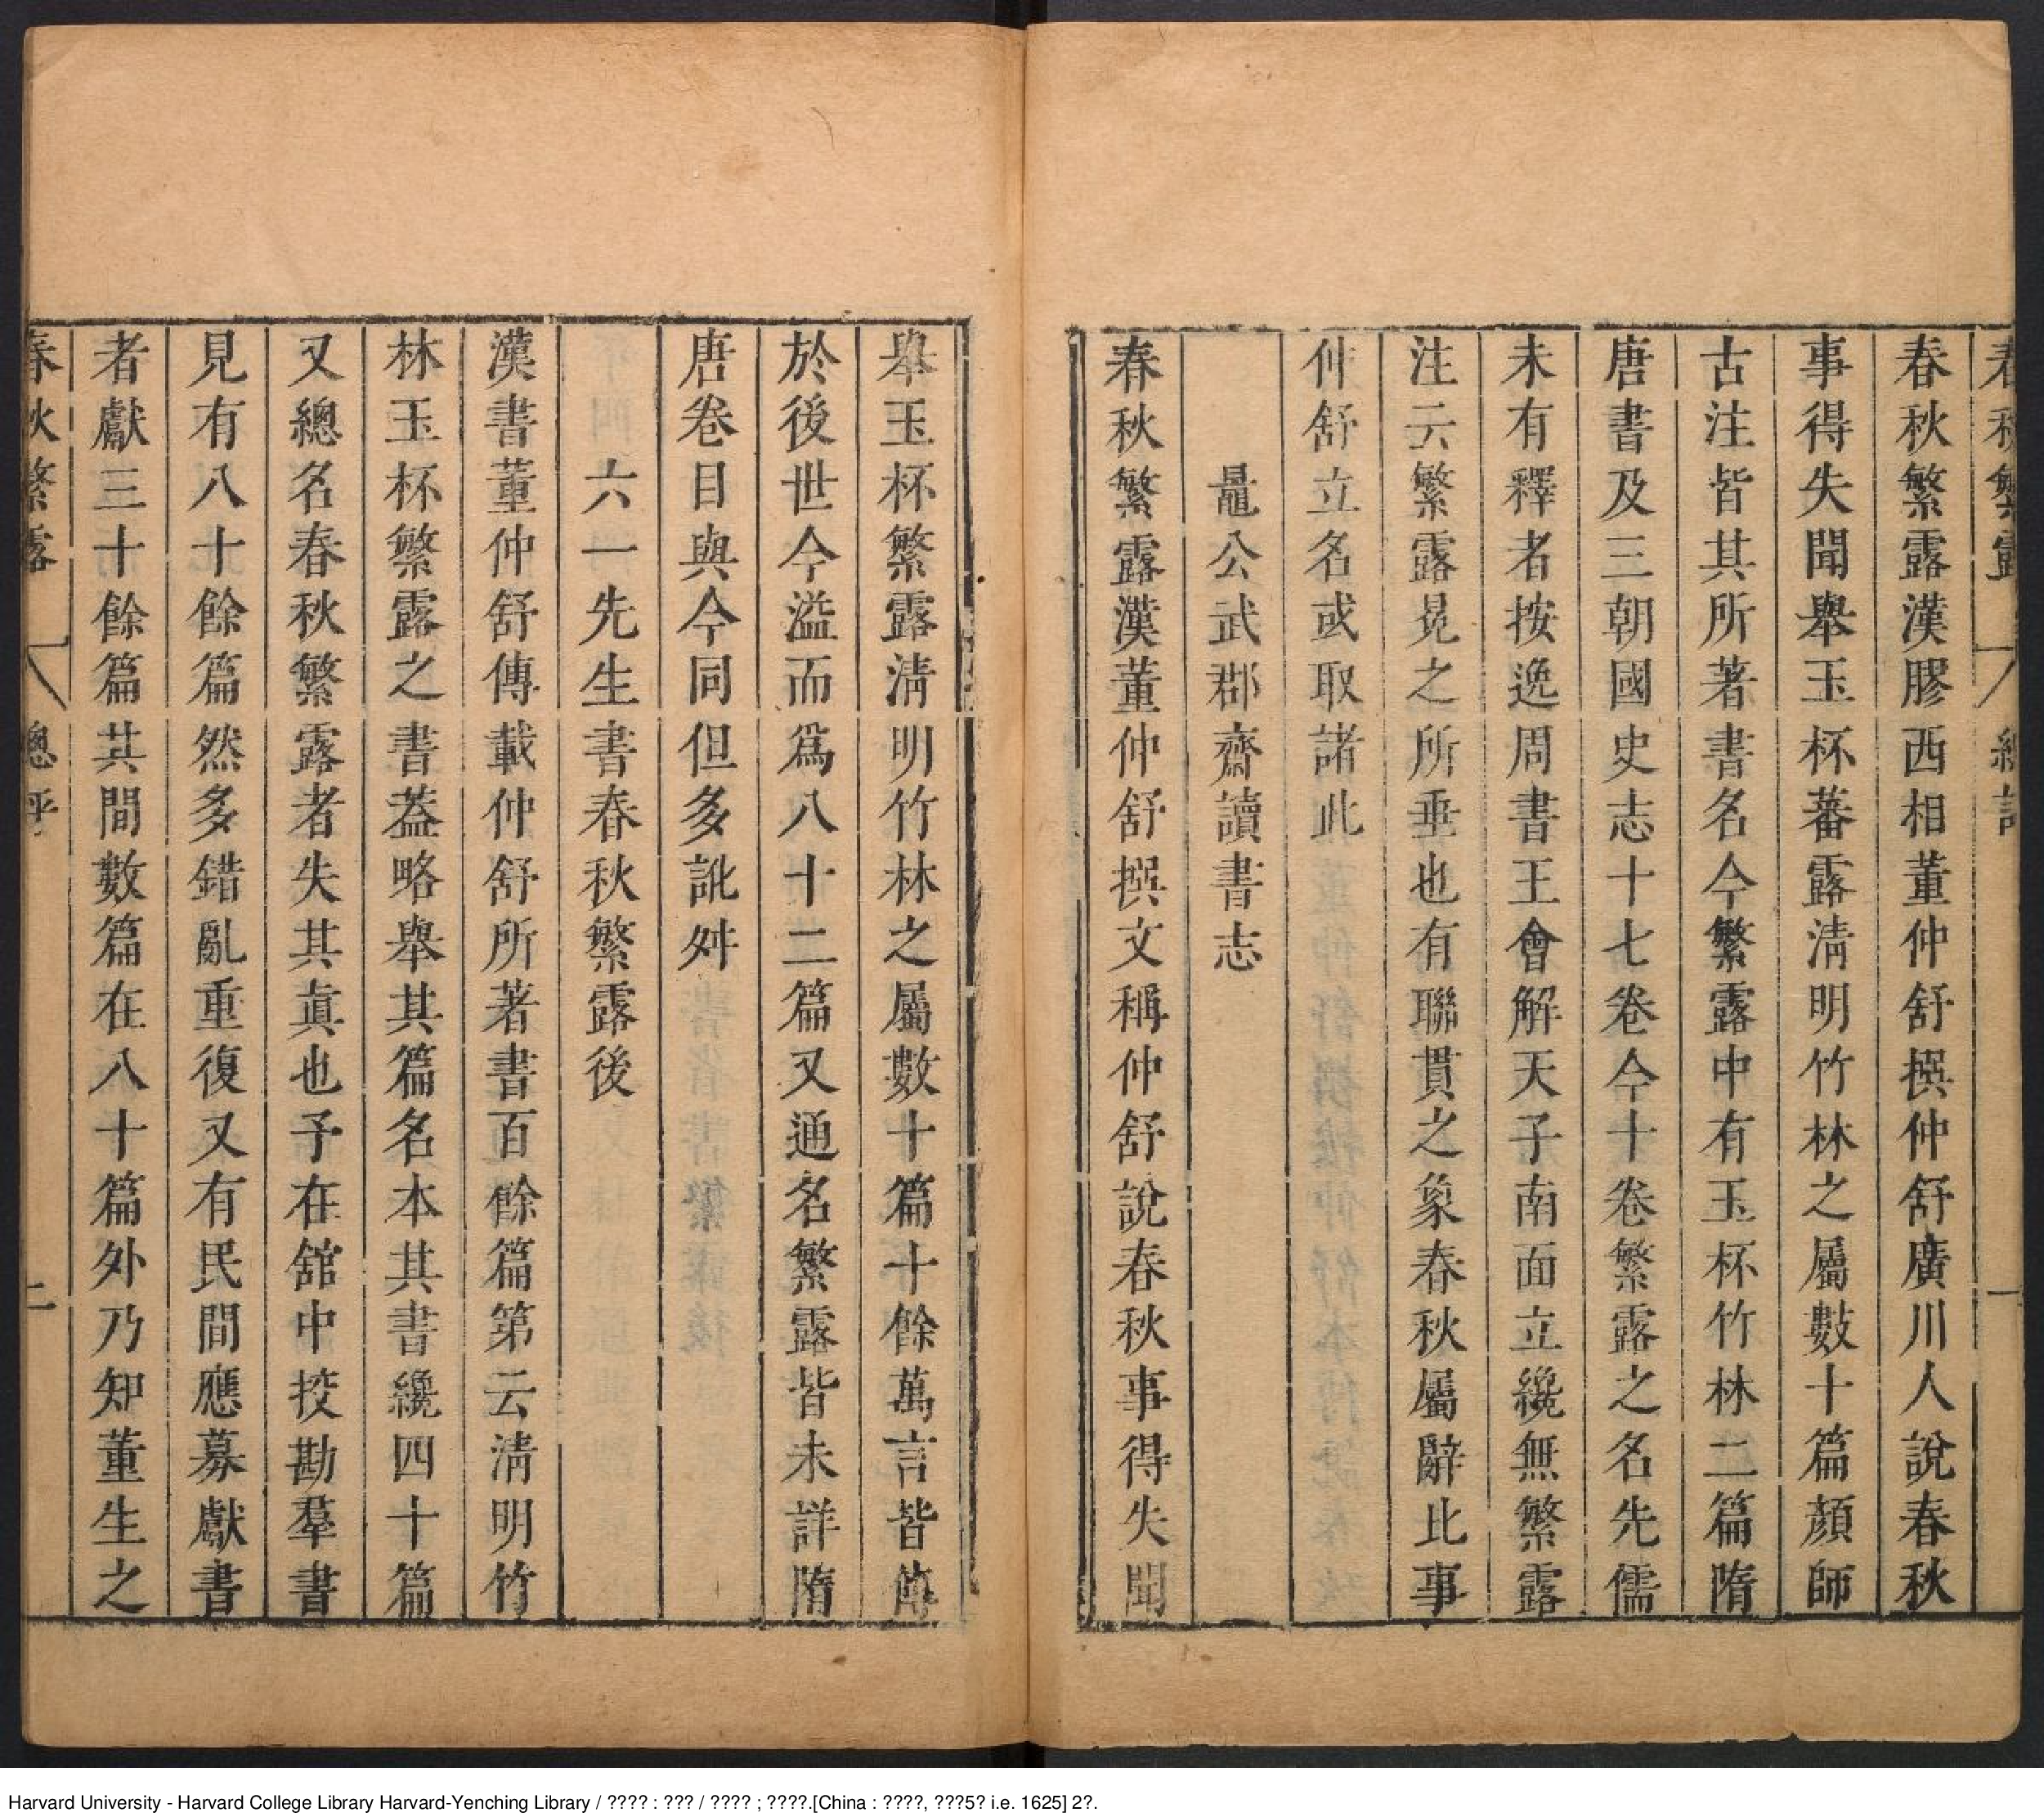 春秋繁露 總評 一
春秋繁露漢膠西相董仲舒撰仲舒廣川人說春秋
事得失聞舉玉杯蕃露清明竹林之屬數十篇顏師
古注皆其所著書名今繁露中有玉杯竹林二篇隋
唐書及三朝國史志十七卷今十卷繁露之名先儒
未有釋者按逸周書王會解天子南面立絻無繁露
注云繁露冕之所垂也有聯貫之象春秋屬辭比事
仲舒立名或取諸此
鼂公武郡齋讀書志
春秋繁露漢董仲舒撰文稱仲舒說春秋事得失聞
舉玉杯繁露清明竹林之屬數十篇十餘萬言皆傳
於後世今溢而爲八十二篇又通名繁露皆未詳隋
唐卷目與今同但多訛舛
六一先生書春秋繁露後
漢書董仲舒傳載仲舒所著書百餘篇第云清明竹
林玉杯繁露之書葢略舉其篇名本其書纔四十篇
又總名春秋繁露者失其眞也予在舘中挍勘羣書
見有八十餘篇然多錯亂重復又有民間應募獻書
者獻三十餘篇其間數篇在八十篇外乃知董生之
春秋繁露 總評 二
Harvard University - Harvard College Library Harvard-Yenching Library / ???? : ??? / ???? ; ????.[China : ????, ???5? i.e. 1625] 2?.